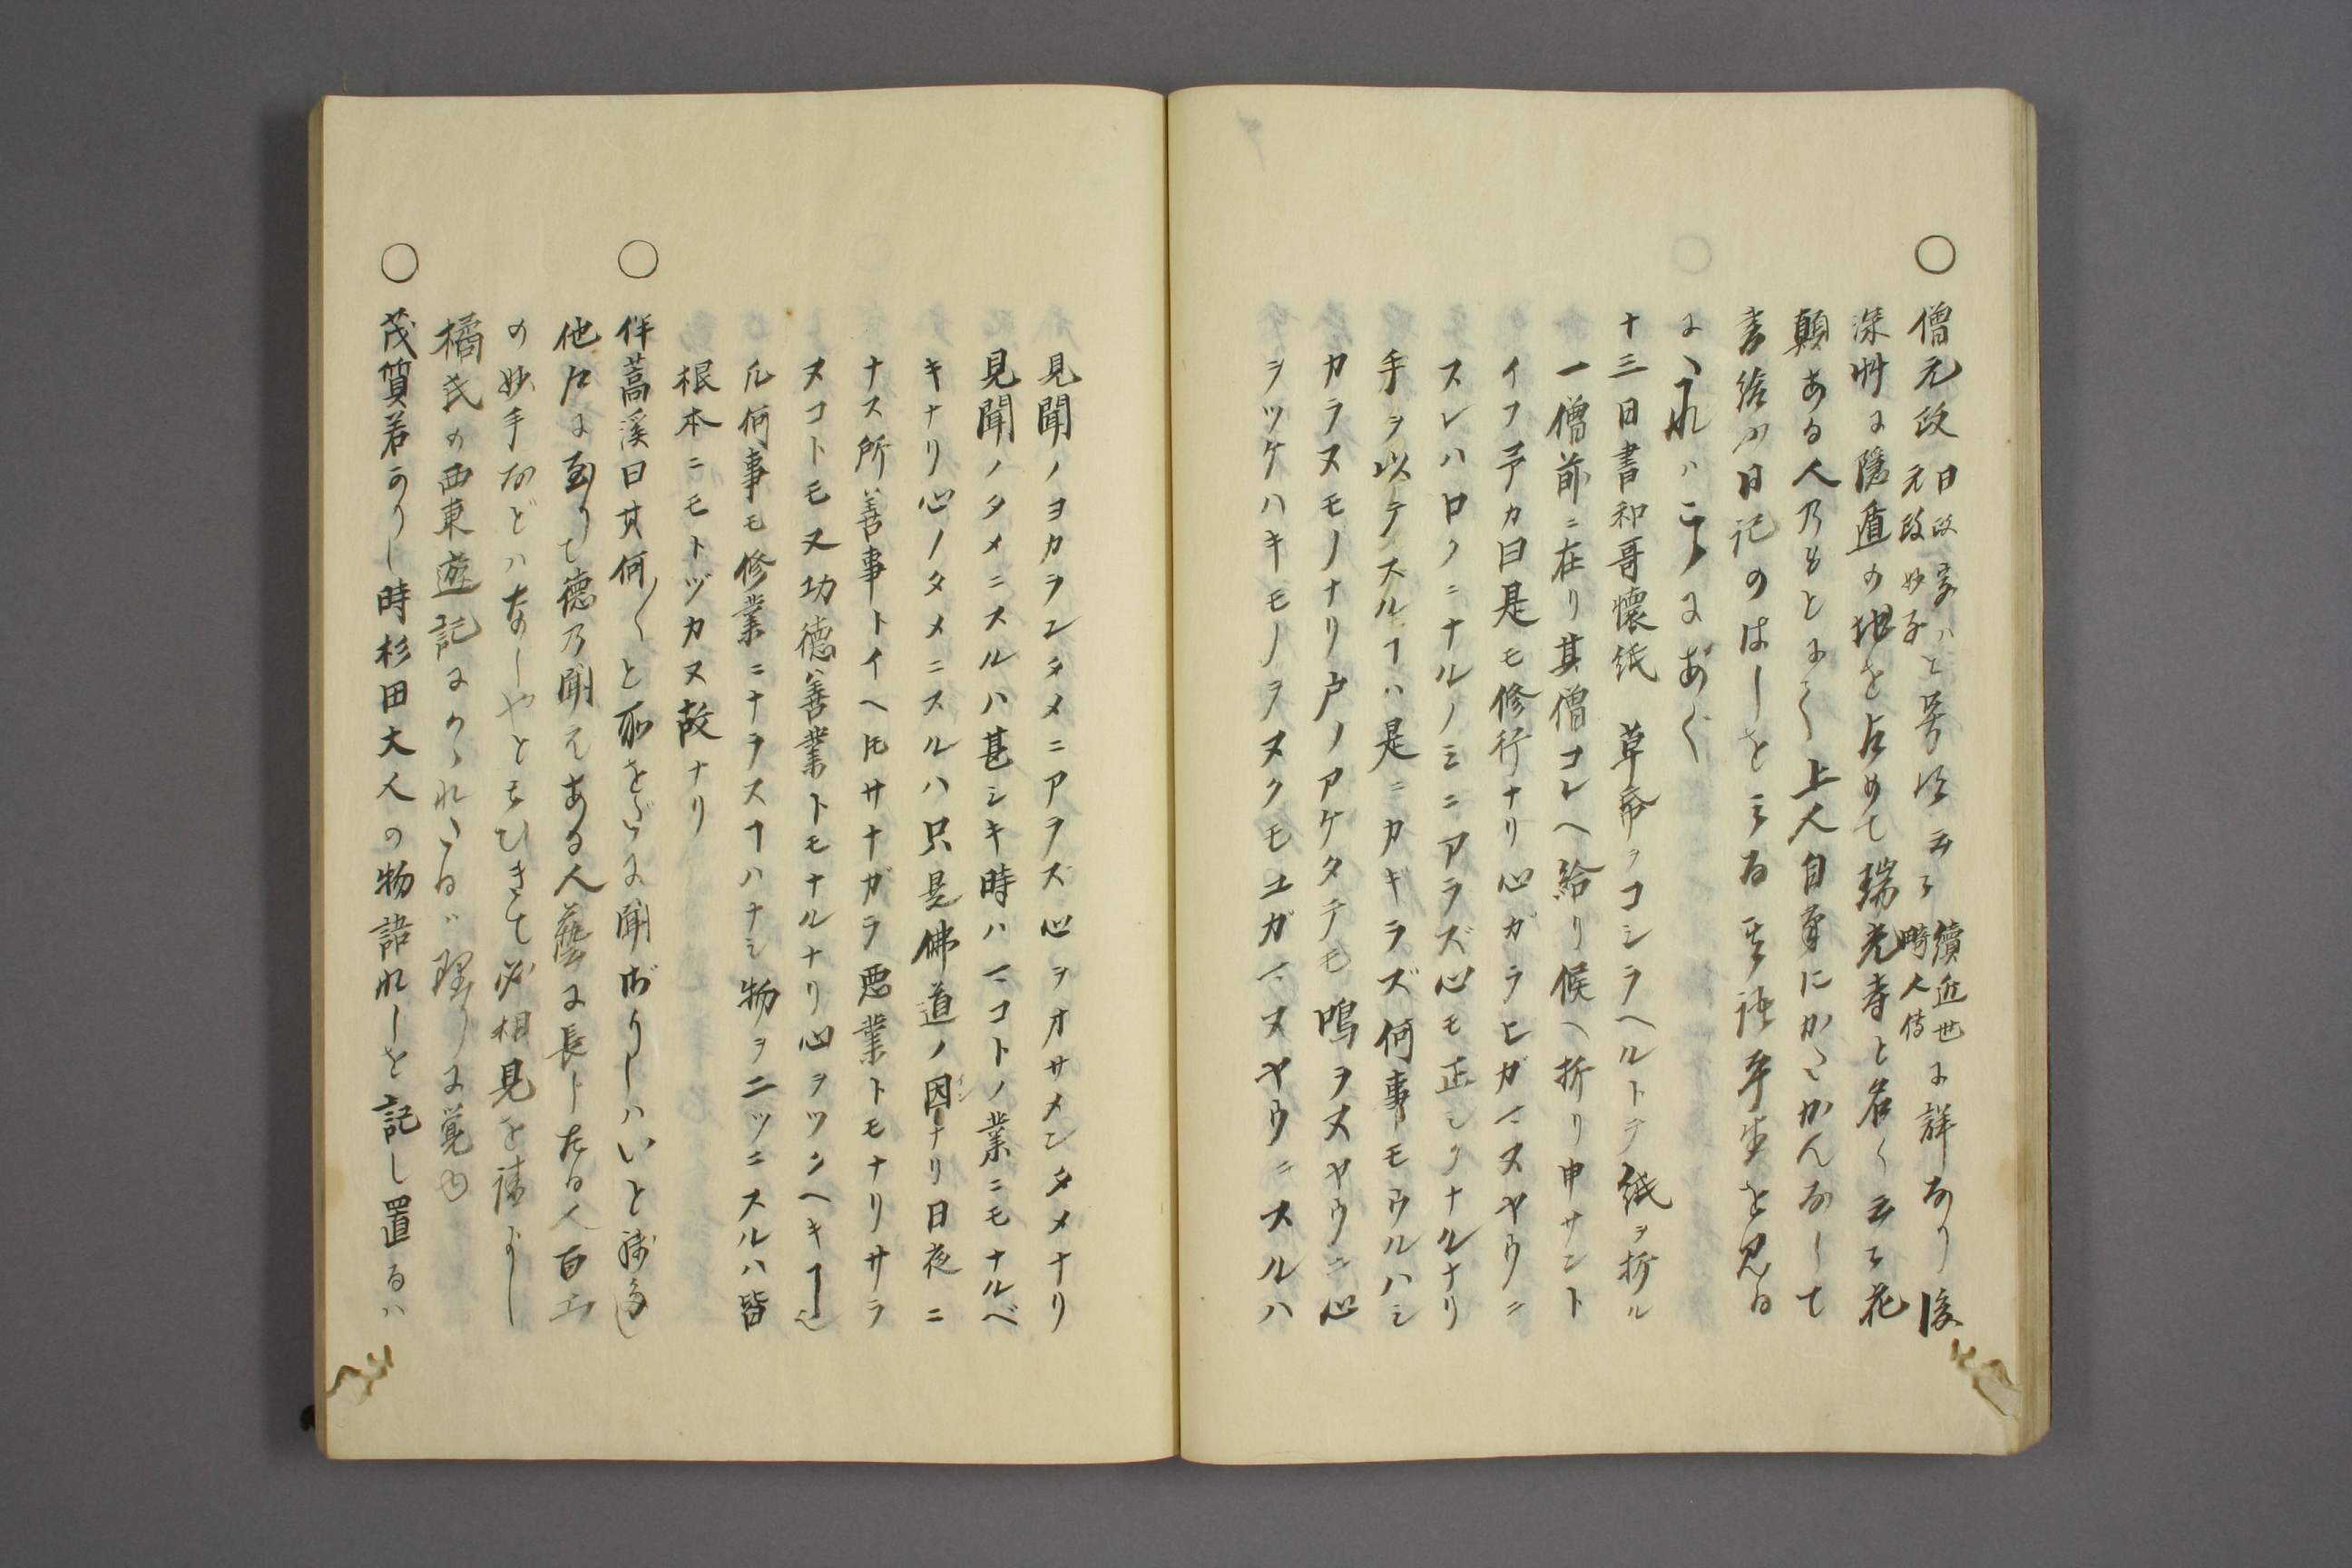 ○僧元政 日政家ハと 元政妙子 云々 續近世 畸人傳 に詳なり後
深艸に隱遁の地を占めて瑞光寺と名く云々花
顛ある人乃もとにて上人自筆にかゝかんなして
書給ふ日記のはしをみる 平生を見る
にこれハこゝにあぐ
十三日書和哥懷紙 草帋ヲコシラヘルトテ紙ヲ折ル
一僧前ニ在リ其僧コレヘ給リ候ヘ折リ申サント
イフ予カ曰是モ修行ナリ心ガラヒガマヌヤウニ
スレハロクニナルノミニアラズ心モ正シクナルナリ
手ヲ以テスルヿハ是ニカギラズ何事モウルハシ
カラヌモノナリ戸ノアケタテモ鳴ヲヌヤウニ心
ヲツケハキモノヲヌクモユガマヌヤウニスルハ
見聞ノヨカランタメニアラズ心ヲオサメンタメナリ
見聞ノタメニスルハ甚シキ時ハマコトノ業ニモナルベ
キナリ心ノタメニスルハ只是佛道ノ因ナリ日夜ニ
ナス所善事トイヘ𪜈サナガラ悪業トモナリサラ
ヌコトモ又功徳善業トモナルナリ心ヲツクヘキヿ也
凡何事モ修業ニナラスヿハナシ物ヲ二ツニスルハ皆
根本ニモトヅカヌ故ナリ
○伴蒿溪曰其何〱と云をだに聞ざりしハいと
他に至りて徳乃聞えある人藝に長したる人百工
の妙手などハなしやととひきて必相見を請ふよし
橘氏の西東遊記にのられたるが理りに覚ゆ
○茂質若かりし時杉田大人の物語れしを記し置るハ